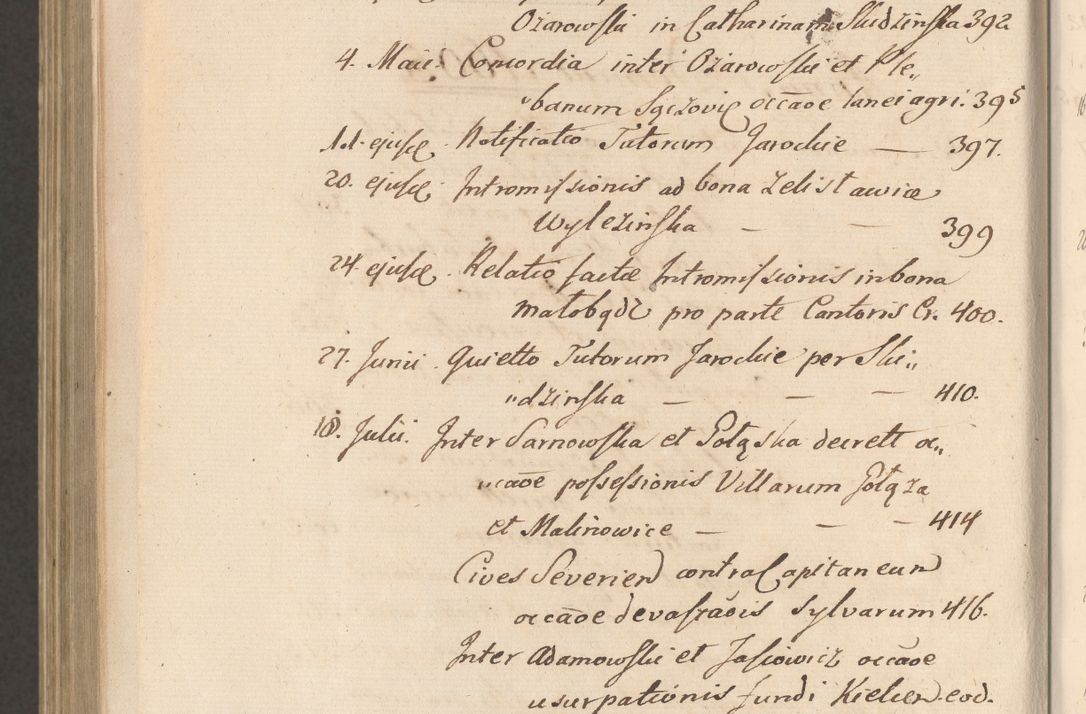 Ożarowski in Catharinam Skidzińska 392
4. Maii. Concordia inter Ożarowski et Ple„
„banum Sączovię occaōe lanei agri. 395
11. ejusdē. Notificatio Tutorum Jarockie — 397.
20. ejusdē. Intromissionis ad bona Zelisławice
Wyleżinska — — 399
24. ejusdē. Relatio factæ Intromissionis in bona
Małobądz pro parte Cantoris Cr. 400.
27. Junii. Quietto Tutorum Jarockie per Ski„
„dzińska — — — 410.
18. Julii. Inter Sarnowska et Gołąska decrett oc„
„caōe possessionis Villarum Gołąza
et Malinowice — — — 414
Cives Severien contra Capitaneum
occaōe devastaōis Sylvarum 416.
Inter Adamowski et Jasiowicz occaōe
usurpationis fundi Kielcen. eod.